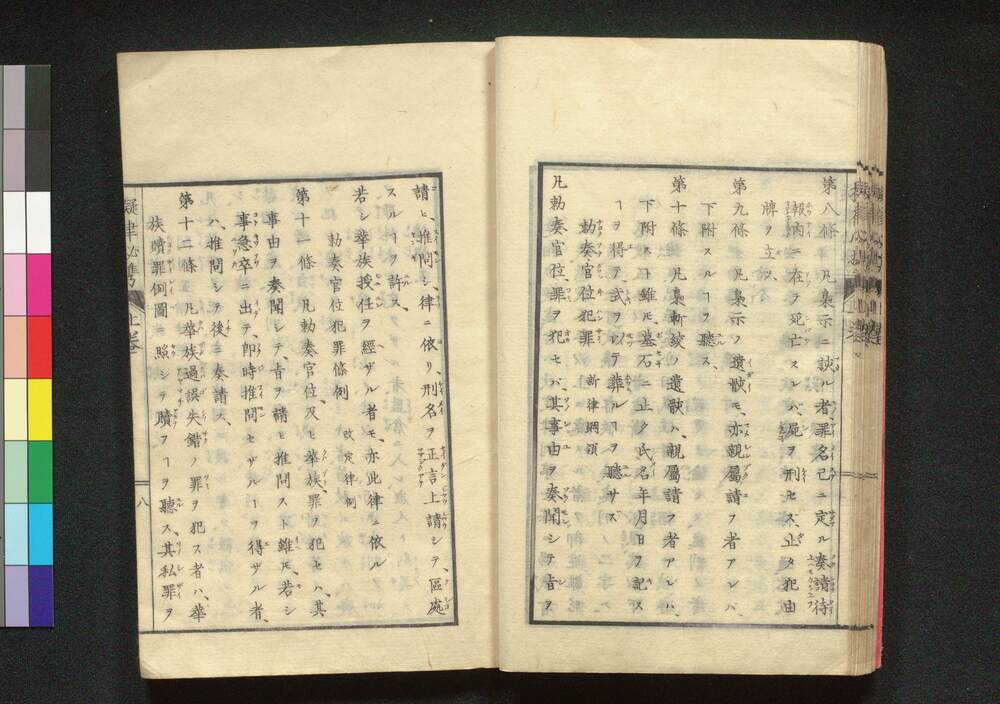 第八條 凡梟示ニ決スル者罪名已ニ定ル奏請待
報内ニ在ヲ死亡スルハ、屍ヲ刑セス、止タ犯由
牌ヲ立ス、
第九條 凡梟示ノ遺骸モ、亦親屬請フ者アレハ、
下附スルヿヲ聽ス、
第十條 凡梟斬絞ノ遺骸ハ、親屬請フ者アレハ、
下附スト雖モ、墓石ニ止タ氏名年月日ヲ記ス
ヿヲ得テ、式ヲ以テ葬ルヿヲ聽サス
勅奏官位犯罪 新律綱領
凡勅奏官位罪ヲ犯セハ、其事由ヲ奏聞シテ旨ヲ
請ヒ、推問シ、律ニ依リ刑名ヲ正言上請シテ、區處
スルヿヲ許ス、
若シ華族授任ヲ經ザル者モ、亦此律ニ依ル
勅奏官位犯罪條例 改定律例
第十一條 凡勅奏官位及ヒ華族、罪ヲ犯セハ、其
事由ヲ奏聞シテ、旨ヲ請ヒ推問スト雖モ、若シ
事急卒ニ出テ、即時推問セザルヿヲ得ザル者、
ハ、推問シテ後ニ奏請ス、
第十二條 凡華族過誤失錯ノ罪ヲ犯ス者ハ、華
族贖罪例圖ニ照シテ贖フヿヲ聽ス、其私罪ヲ
擬律必携 上巻 八